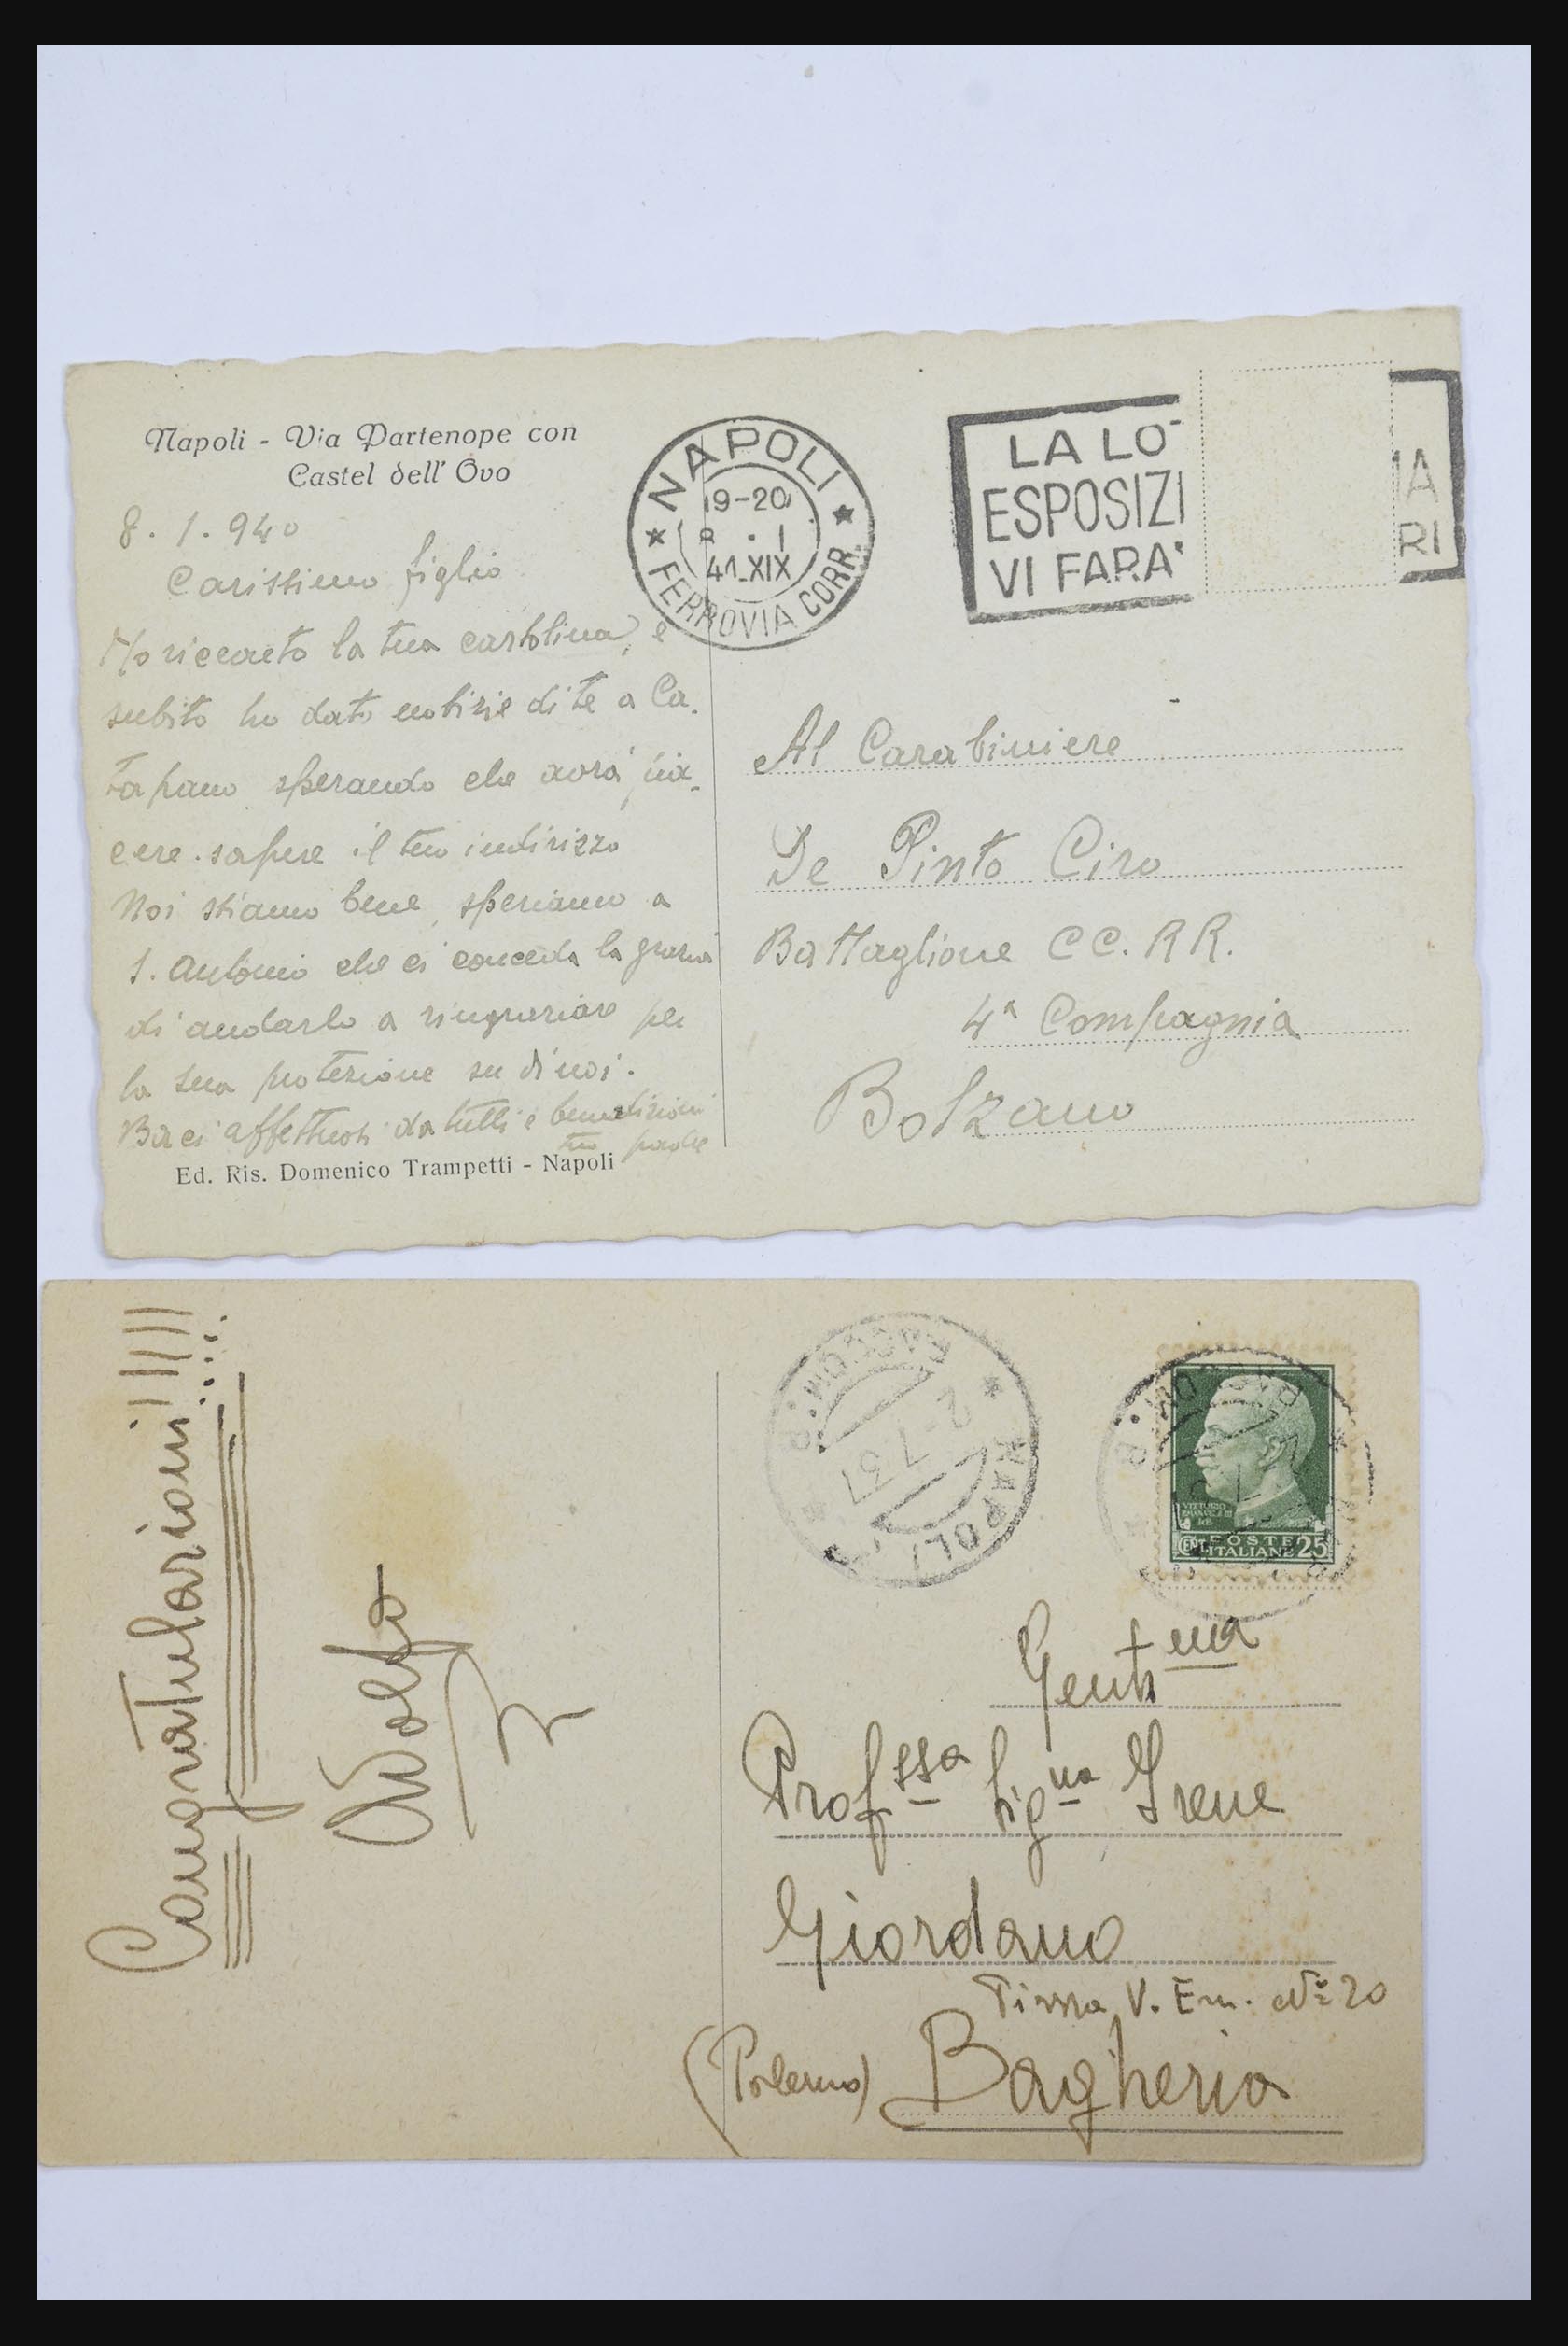 Napoli - Via Partenope con
Castel dell' Ovo
8.1.940
Carissimo figlio
Ho ricevuto la tua cartolina, e
subito ho dato notizie di te a Ca.
tapano sperando che avrà pia.
cere. sapere il tuo indirizzo
Noi stiamo bene, speriamo a
S. Antonio che ci conceda la grazia
di andarlo a ringraziare per
la sua protezione su di noi.
Baci affettuosi da tutti e benedizioni
tuo padre
Ed. Ris. Domenico Trampetti - Napoli
* NAPOLI *
19-20
8 . 1
41.XIX
FERROVIA CORR.
LA LO
ESPOSIZI
VI FARA'
IA
RI
Al Carabiniere
De Pinto Ciro
Battaglione CC. RR.
4ª Compagnia
Bolzano
Congratulazioni!!!!!
Adolfo
NAPOLI
2-7 37
VITTORIO
EMANUELE III
RE
CENT. POSTE
ITALIANE 25
Gentma
Profssa Signa Irene
Giordano
Piazza V. Em. N° 20
(Palermo) Bagheria